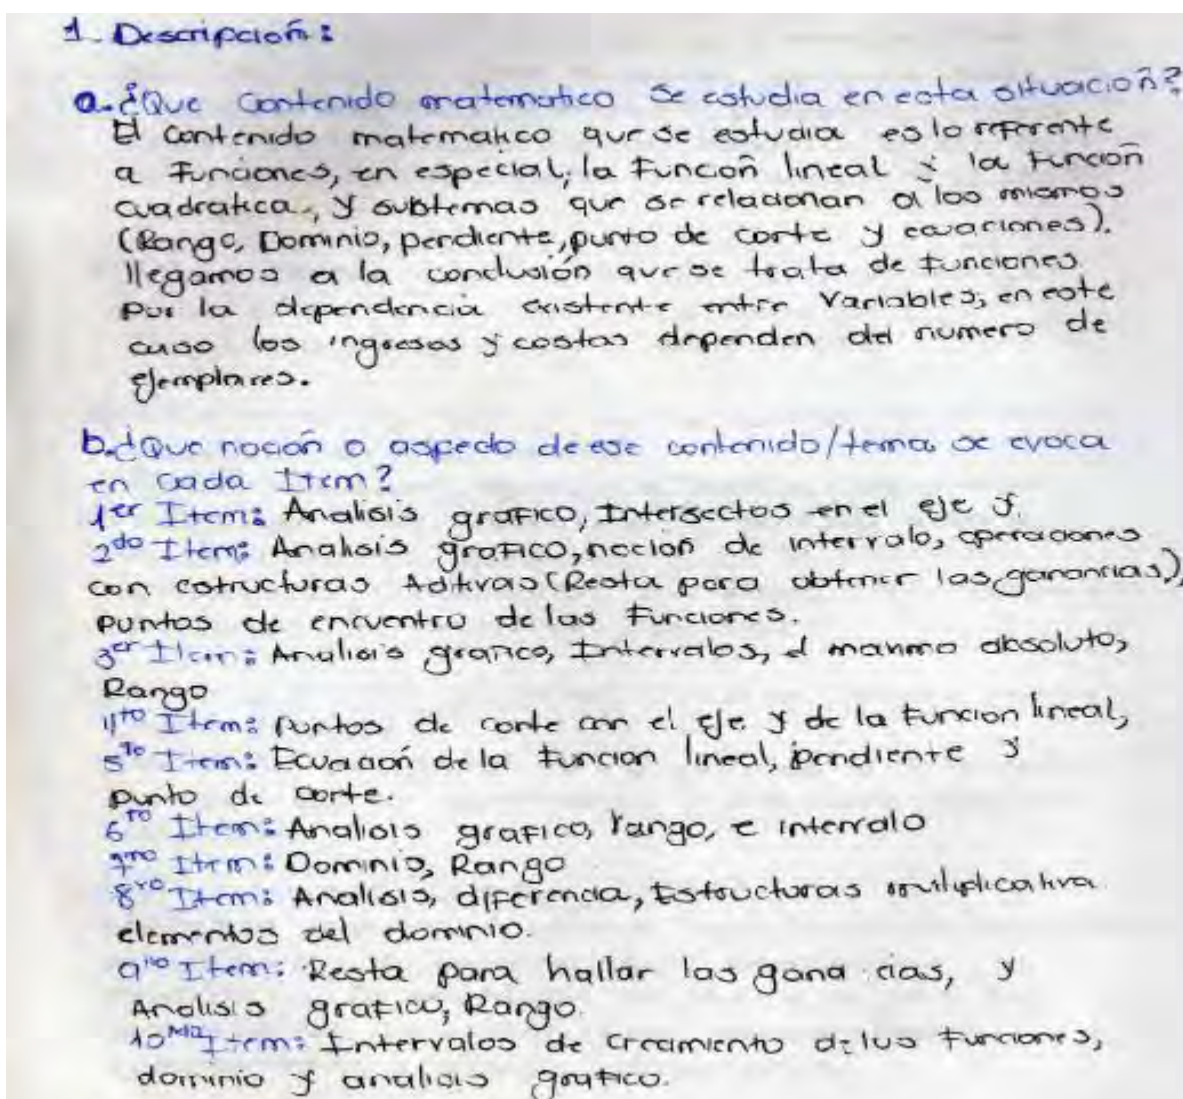 1. Descripción:
a. ¿Que contenido matematico se estudia en esta situación?
El contenido matematico que se estudia es lo referente
a Funciones, en especial, la Función lineal y la Función
cuadratica, y subtemas que se relacionan a los mismos
(Rango, Dominio, pendiente, punto de corte y ecuaciones).
llegamos a la conclusión que se trata de Funciones
por la dependencia existente entre variables, en este
caso los ingresos y costos dependen del numero de
ejemplares.
b. ¿Que noción o aspecto de ese contenido/tema se evoca
en cada Item?
1er Item: Analisis grafico, Intersectos en el eje y.
2do Item: Analisis grafico, noción de intervalo, operaciones
con estructuras Aditivas (Resta para obtener las ganancias),
puntos de encuentro de las Funciones.
3er Item: Analisis grafico, Intervalos, el maximo absoluto,
Rango
4to Item: puntos de corte con el eje y de la Funcion lineal,
5to Item: Ecuación de la Funcion lineal, pendiente y
punto de corte.
6to Item: Analisis grafico, rango, e intervalo
7mo Item: Dominio, Rango
8vo Item: Analisis, diferencia, Estructuras multiplicativa
elementos del dominio.
9no Item: Resta para hallar las ganacias, y
Analisis grafico, Rango.
10ma Item: Intervalos de crecimiento de las Funciones,
dominio y analisis grafico.